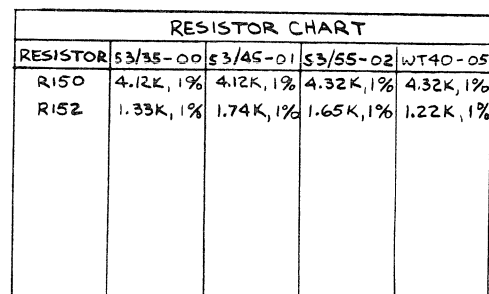 RESISTOR CHART
RESISTOR S3/35-00 S3/45-01 S3/55-02 WT40-05
R150 4.12K, 1% 4.12K, 1% 4.32K, 1% 4.32K, 1%
R152 1.33K, 1% 1.74K, 1% 1.65K, 1% 1.22K, 1%